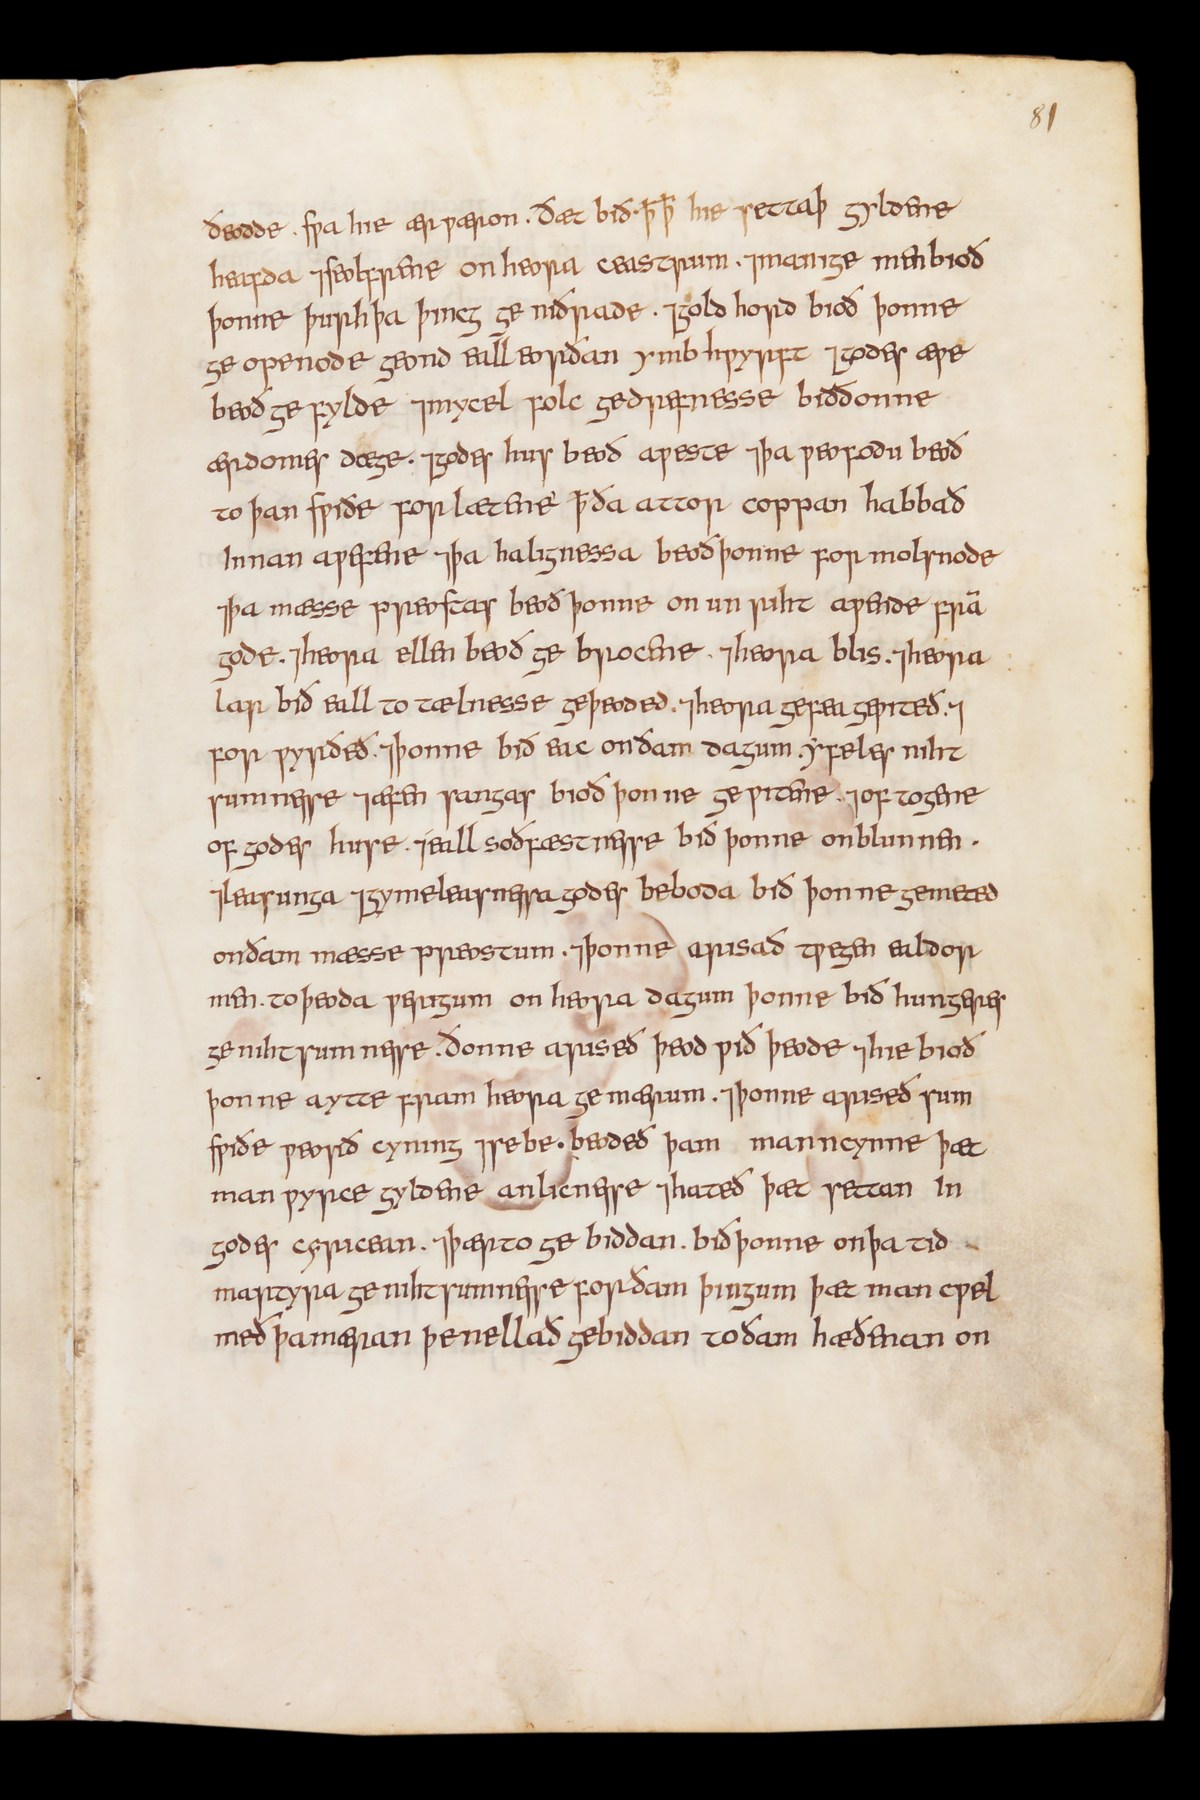 81
ðeodde . swa hie ær wæron . ðæt bið · ꝥ ꝥ hie settaþ gyldene
heafda ⁊ seolfrene on heora ceastrum . ⁊ manige men bioð
þonne þurh þa þincg ge niðrade . ⁊ gold hord bioð þonne
ge openode geond eall eorðan ymb hwyrft ⁊ godes æwe
beoð ge fylde ⁊ mycel folc gedrefnesse bið ðonne
ær domes dæge . ⁊ godes hus beoð aweste ⁊ þa weofodu beoð
to þan swiðe for lætene ꝥ ða attor coppan habbað
Innan awefene ⁊ þa halignessa beoð þonne for molsnode
⁊ þa mæsse preostas beoð þonne on un riht awende frā
gode . ⁊ heora ellen beoð ge brocene . ⁊ heora blis . ⁊ heora
lar bið eall to tælnesse geþeoded . ⁊ heora gefea gewiteð . ⁊
for wyrðeð . ⁊ þonne bið eac on ðam dagum . yfeles niht
sumnesse ⁊ æfen sangas bioð þonne ge witene . ⁊ of togene
of godes huse . ⁊ eall soðfæstnesse bið þonne onblunnen .
⁊ leasunga ⁊ gymeleasnessa godes beboda bið þonne gemeted
on ðam mæsse preostum . ⁊ þonne arisað twegen ealdor
men . to þeoda werigum on heora dagum þonne bið hungeres
ge niht sumnesse . ðonne ariseð þeod wið þeode ⁊ hie bioð
þonne aytte fram heora ge mærum . ⁊ þonne ariseð sum
swiðe weorið cyning ⁊ se be . beodeð þam manncynne þæt
man wyrce gyldene anlicnesse ⁊ hateð þæt settan In
godes cyricean . ⁊ þær to ge biddan . bið þonne on þa tid
martyra ge niht sumnesse for ðam þingum þæt man cwel
með þa mæran þe nellað gebiddan to ðam hæðenan on